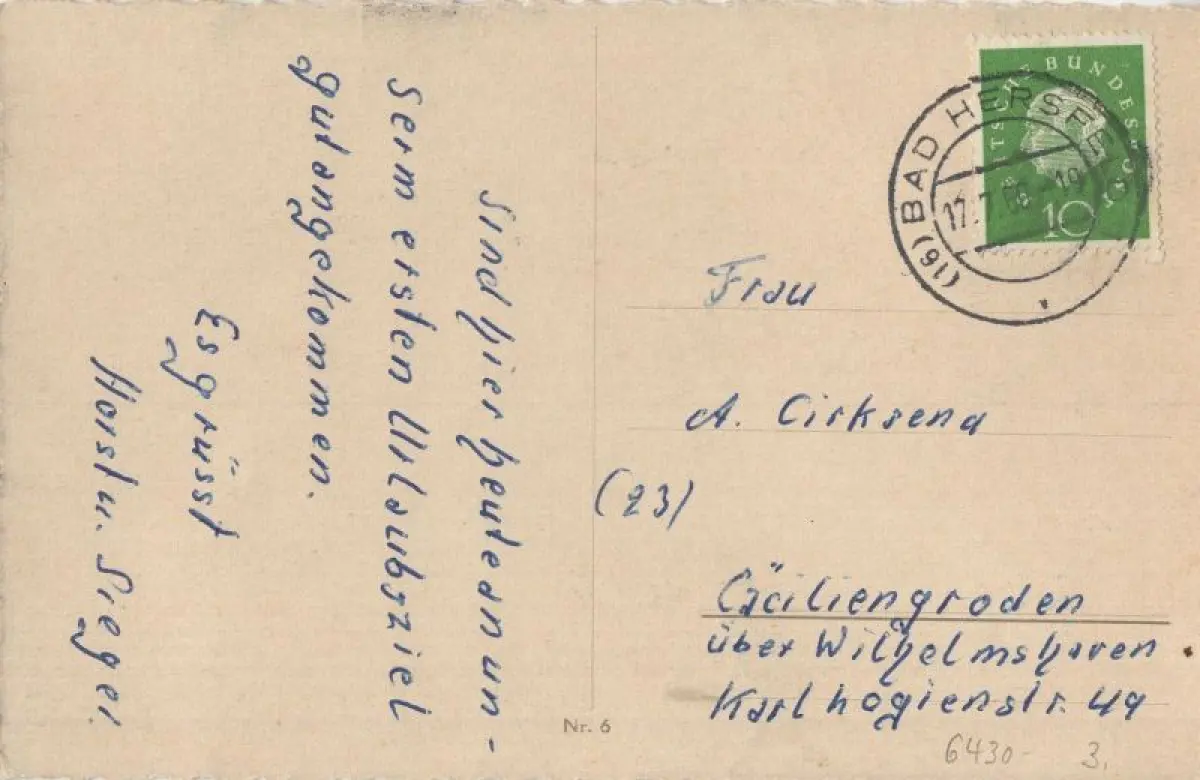 Sind hier heute an un-
serm ersten Urlaubsziel
gut angekommen.
Es grüsst
Horst u. Sieger
DEUTSCHE BUNDESPOST
10
(16) BAD HERSFELD
17.7.
Frau
A. Cirksena
(23)
Cäciliengroden
über Wilhelmshaven
49
Nr. 6
6430-
3.